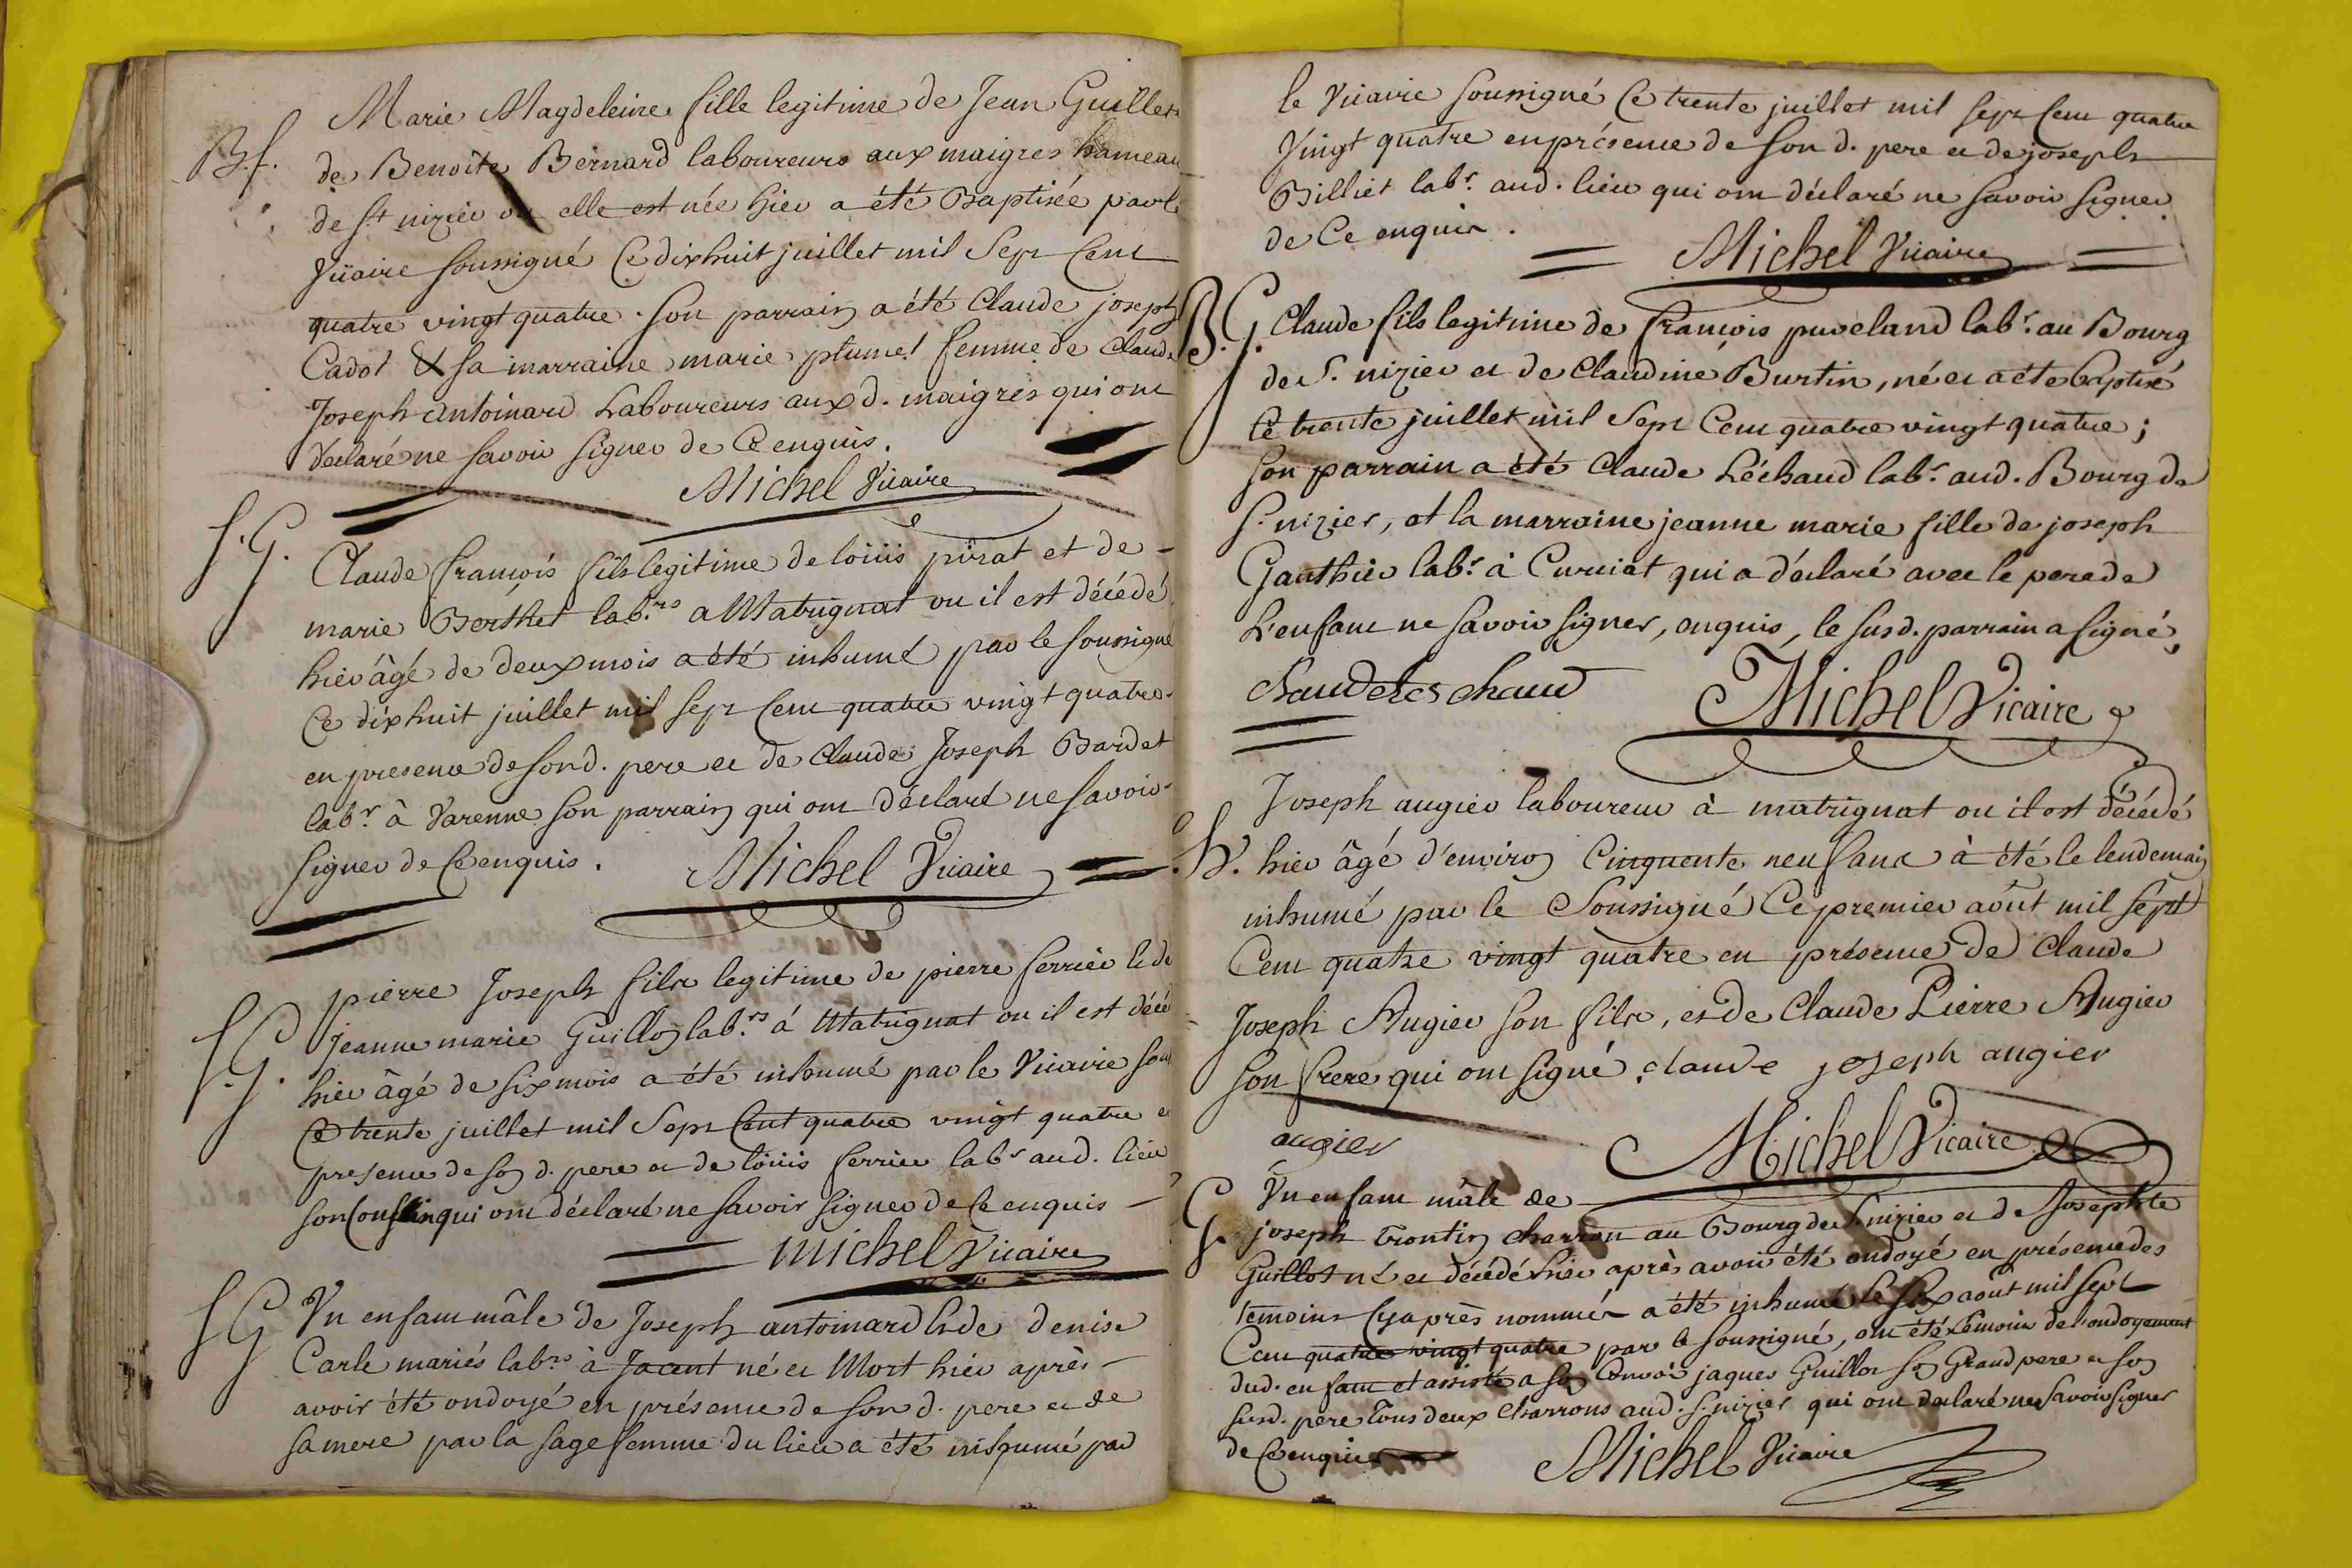 B.f.
Marie Magdeleine fille legitime de Jean Guillet
de Benoite Bernard laboureurs aux maigres hameau
de St nizier ou elle est née hier a été Baptisée par le
Vicaire soussigné Ce dixhuit juillet mil Sept Cent
quatre vingt quatre. Son parrain a été Claude joseph
Cadot & sa marraine marie plumet femme de Claude
Joseph antoinard Laboureurs aux d. maigres qui ont
déclaré ne savoir signer de Ce enquis.
Michel Vicaire
S.G.
Claude françois fils legitime de loüis pirat et de
marie Berthet lab.rs a Matrignat ou il est décédé
hier âgé de deux mois a été inhumé par le soussigné
Ce dixhuit juillet mil sept Cent quatre vingt quatre
en presence de son d. pere et de Claude Joseph Bardet
lab.r à Varenne son parrain qui ont déclaré ne savoir
signer de Ce enquis.
Michel Vicaire
S.G.
pierre Joseph fils legitime de pierre ferrier & de
jeanne marie Guillon lab.rs à Matrignat ou il est décé
hier âgé de six mois a été inhumé par le Vicaire sous
Ce trente juillet mil Sept Cent quatre vingt quatre e
presence de son d. pere et de loüis ferrier lab.r aud. lieu
son Cousin qui ont déclaré ne savoir signer de Ce enquis
Michel Vicaire
S G
Vn enfant mâle de Joseph antoinard & de denise
Carle mariés lab.rs à Jacent né et Mort hier après
avoir été ondoyé en présence de son d. pere et de
sa mere par la sage femme du lieu a été inhumé par
le Vicaire soussigné Ce trente juillet mil sept Cent quatre
Vingt quatre en présence de son d. pere et de joseph
Billiet lab.r aud. lieu qui ont déclaré ne savoir signer
de Ce enquis.
Michel Vicaire
B.G.
Claude fils legitime de françois puveland lab.r au Bourg
de S. nizier et de Claudine Burtin, né et a été baptisé
Ce trente juillet mil Sept Cent quatre vingt quatre;
son parrain a été Claude Léchaud lab.r aud. Bourg de
S. nizier, et la marraine jeanne marie fille de joseph
Gauthier lab.r à Curciat qui a déclaré avec le pere de
L'enfant ne savoir signer, enquis, le susd. parrain a signé,
Michel Vicaire
S.
Joseph augier laboureur à matrignat ou il est décédé
hier âgé d'environ Cinquente neuf ans à été le lendemain
inhumé par le Soussigné Ce premier août mil sept
Cent quatre vingt quatre en présence de Claude
Joseph Augier son fils, et de Claude Pierre Augier
son frere qui ont signé. claude joseph augier
augier
Michel Vicaire
G
Vn enfant mâle de
joseph Trontin charron au Bourg de S. nizier et de Josephte
Guillot né et décédé hier après avoir été ondoyé en présence des
temoins Cy après nommés a été inhumé le six août mil sept
Cent quatre vingt quatre par le soussigné, ont été témoins de l'ondoyement
dud. enfant et assisté a son Convoi jaques Guillot son Grand pere et son
susd. pere Tous deux charrons aud. S. nizier qui ont declaré ne savoir signer
de Ce enquis
Michel Vicaire